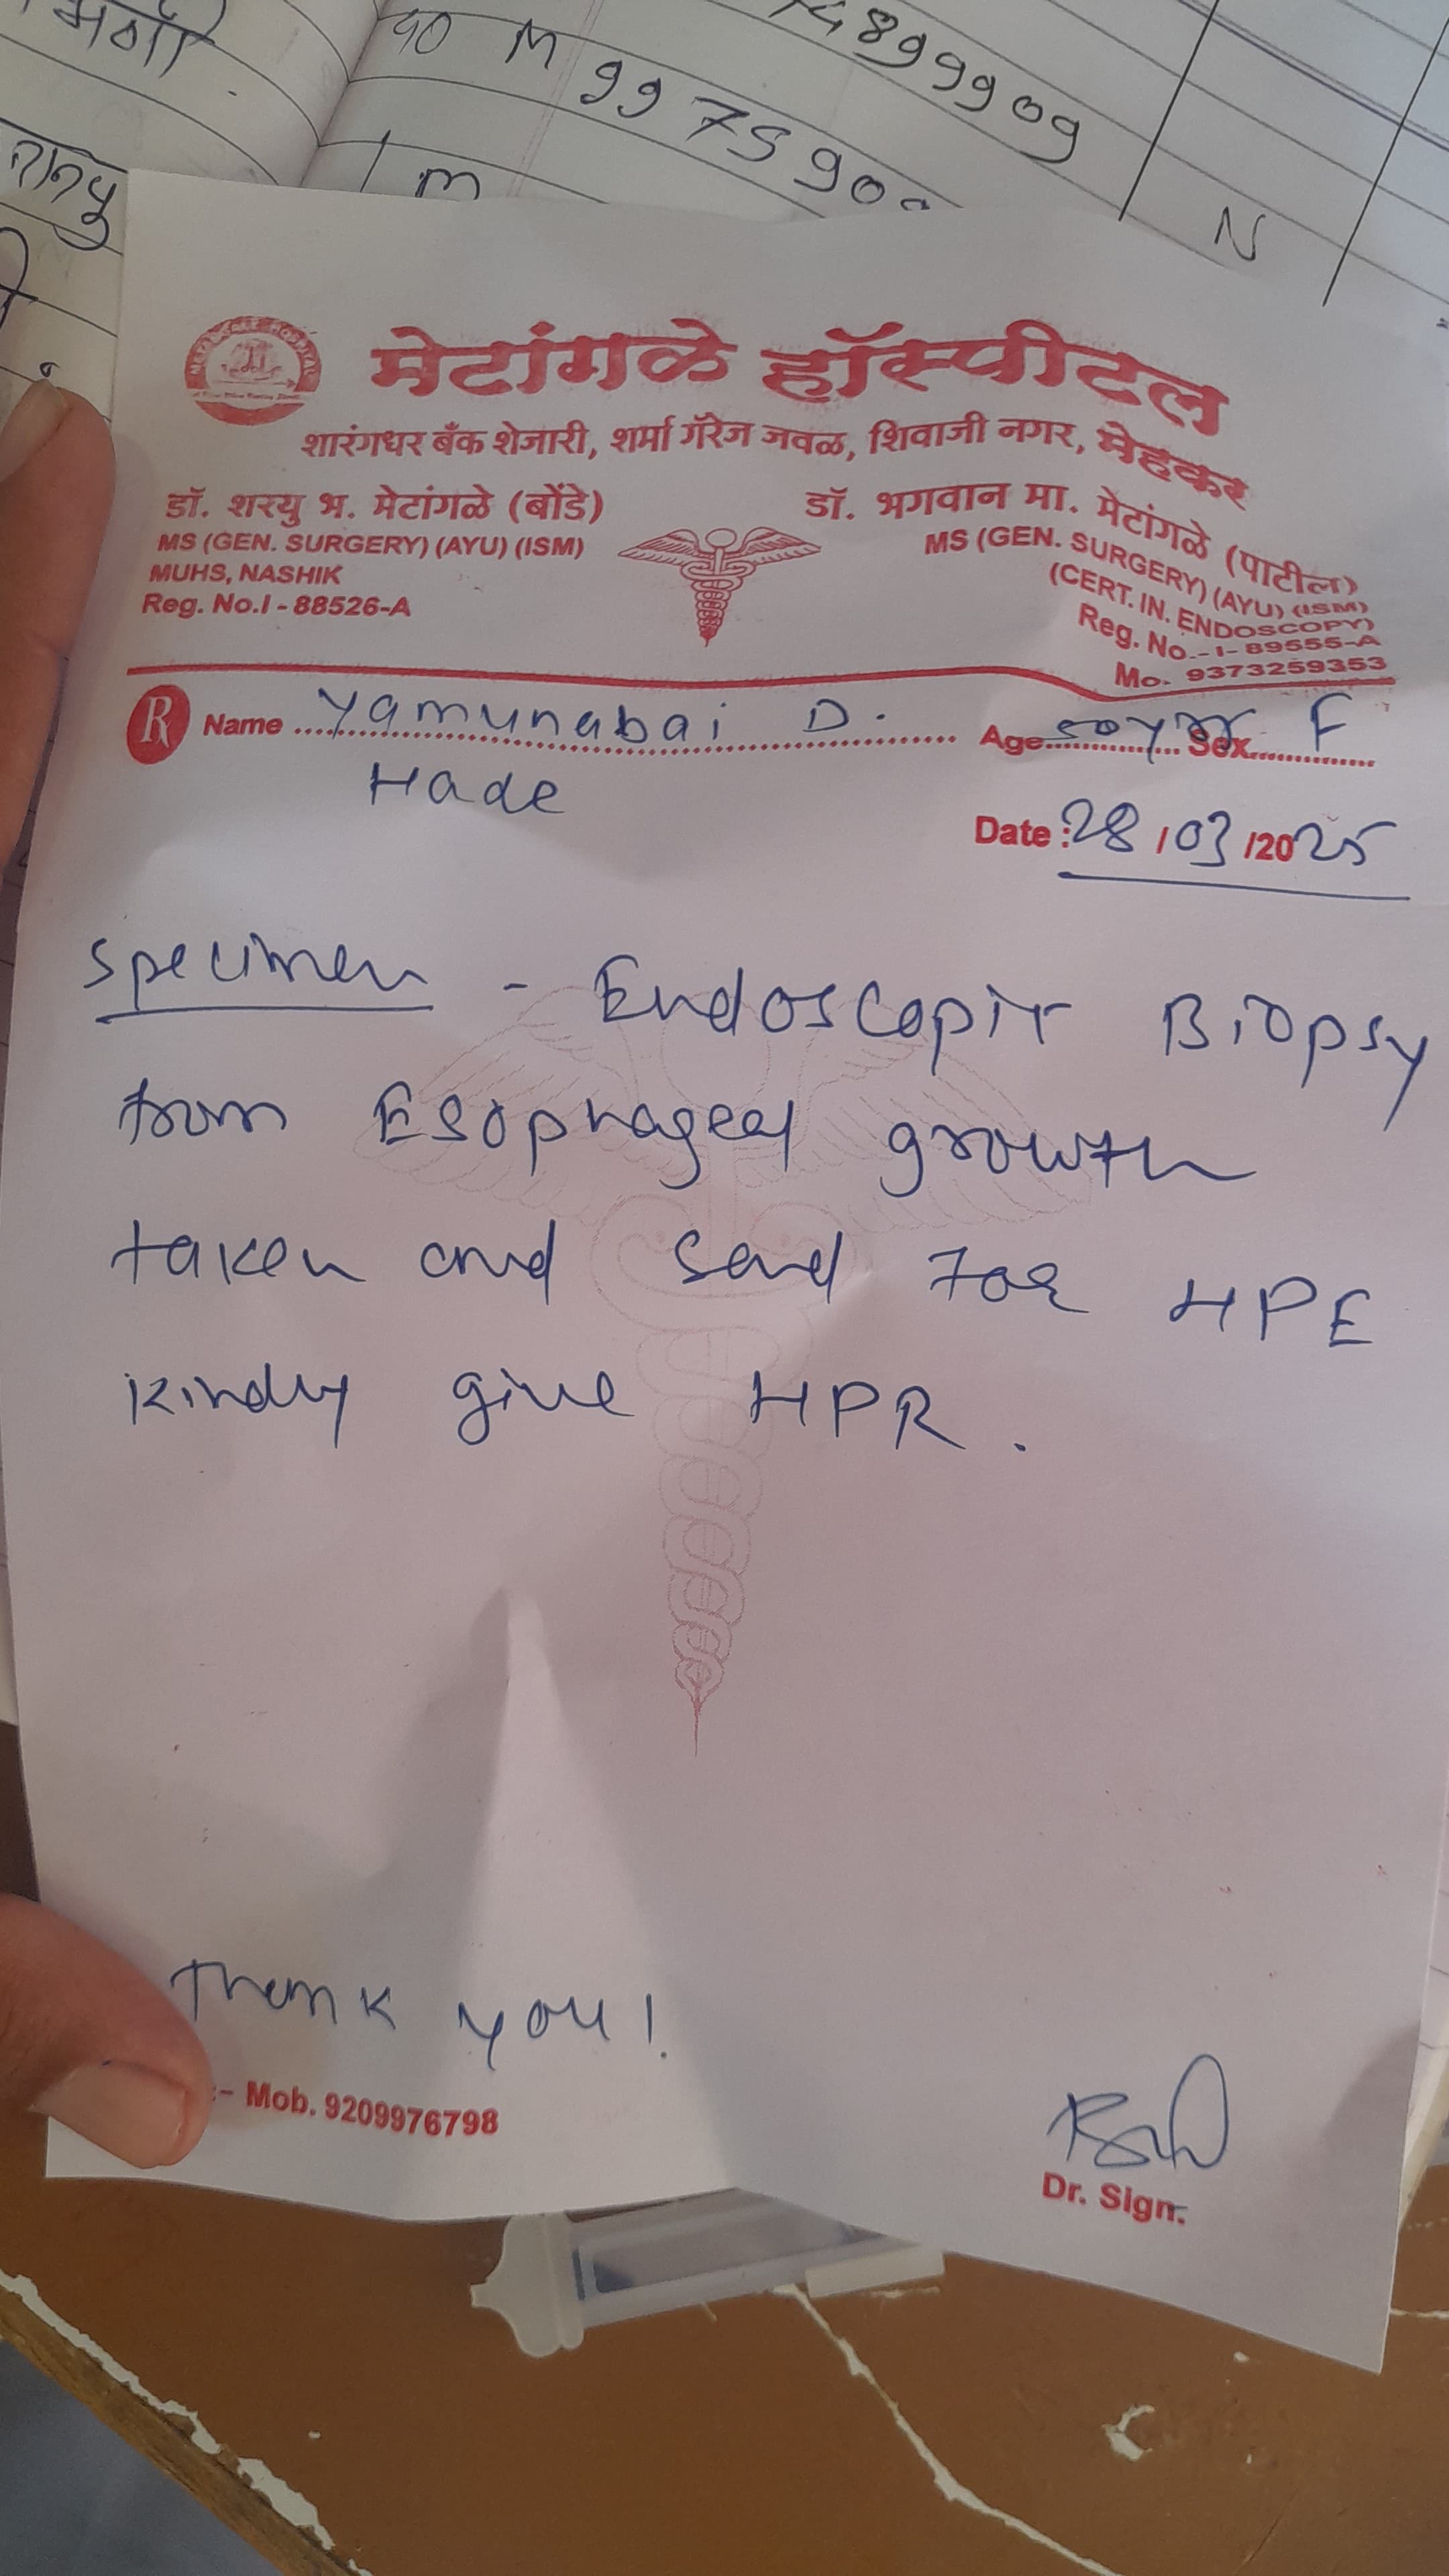 90 M 9975900
4899909
m
N
मेटांगळे हॉस्पीटल
शारंगधर बँक शेजारी, शर्मा गॅरेज जवळ, शिवाजी नगर, मेहकर
डॉ. शरयु भ. मेटांगळे (बोंडे)
MS (GEN. SURGERY) (AYU) (ISM)
MUHS, NASHIK
Reg. No.I - 88526-A
डॉ. भगवान मा. मेटांगळे (पाटील)
MS (GEN. SURGERY) (AYU) (ISM)
(CERT. IN. ENDOSCOPY)
Reg. No.-I-89555-A
Mo. 9373259353
R Name Yamunabai D. Age 50yrs Sex F
Hade
Date : 28 / 03 /2025
Specimen - Endoscopic Biopsy
from Esophageal growth
taken and send for HPE
kindly give HPR.
Thank you!
:- Mob. 9209976798
Dr. Sign.